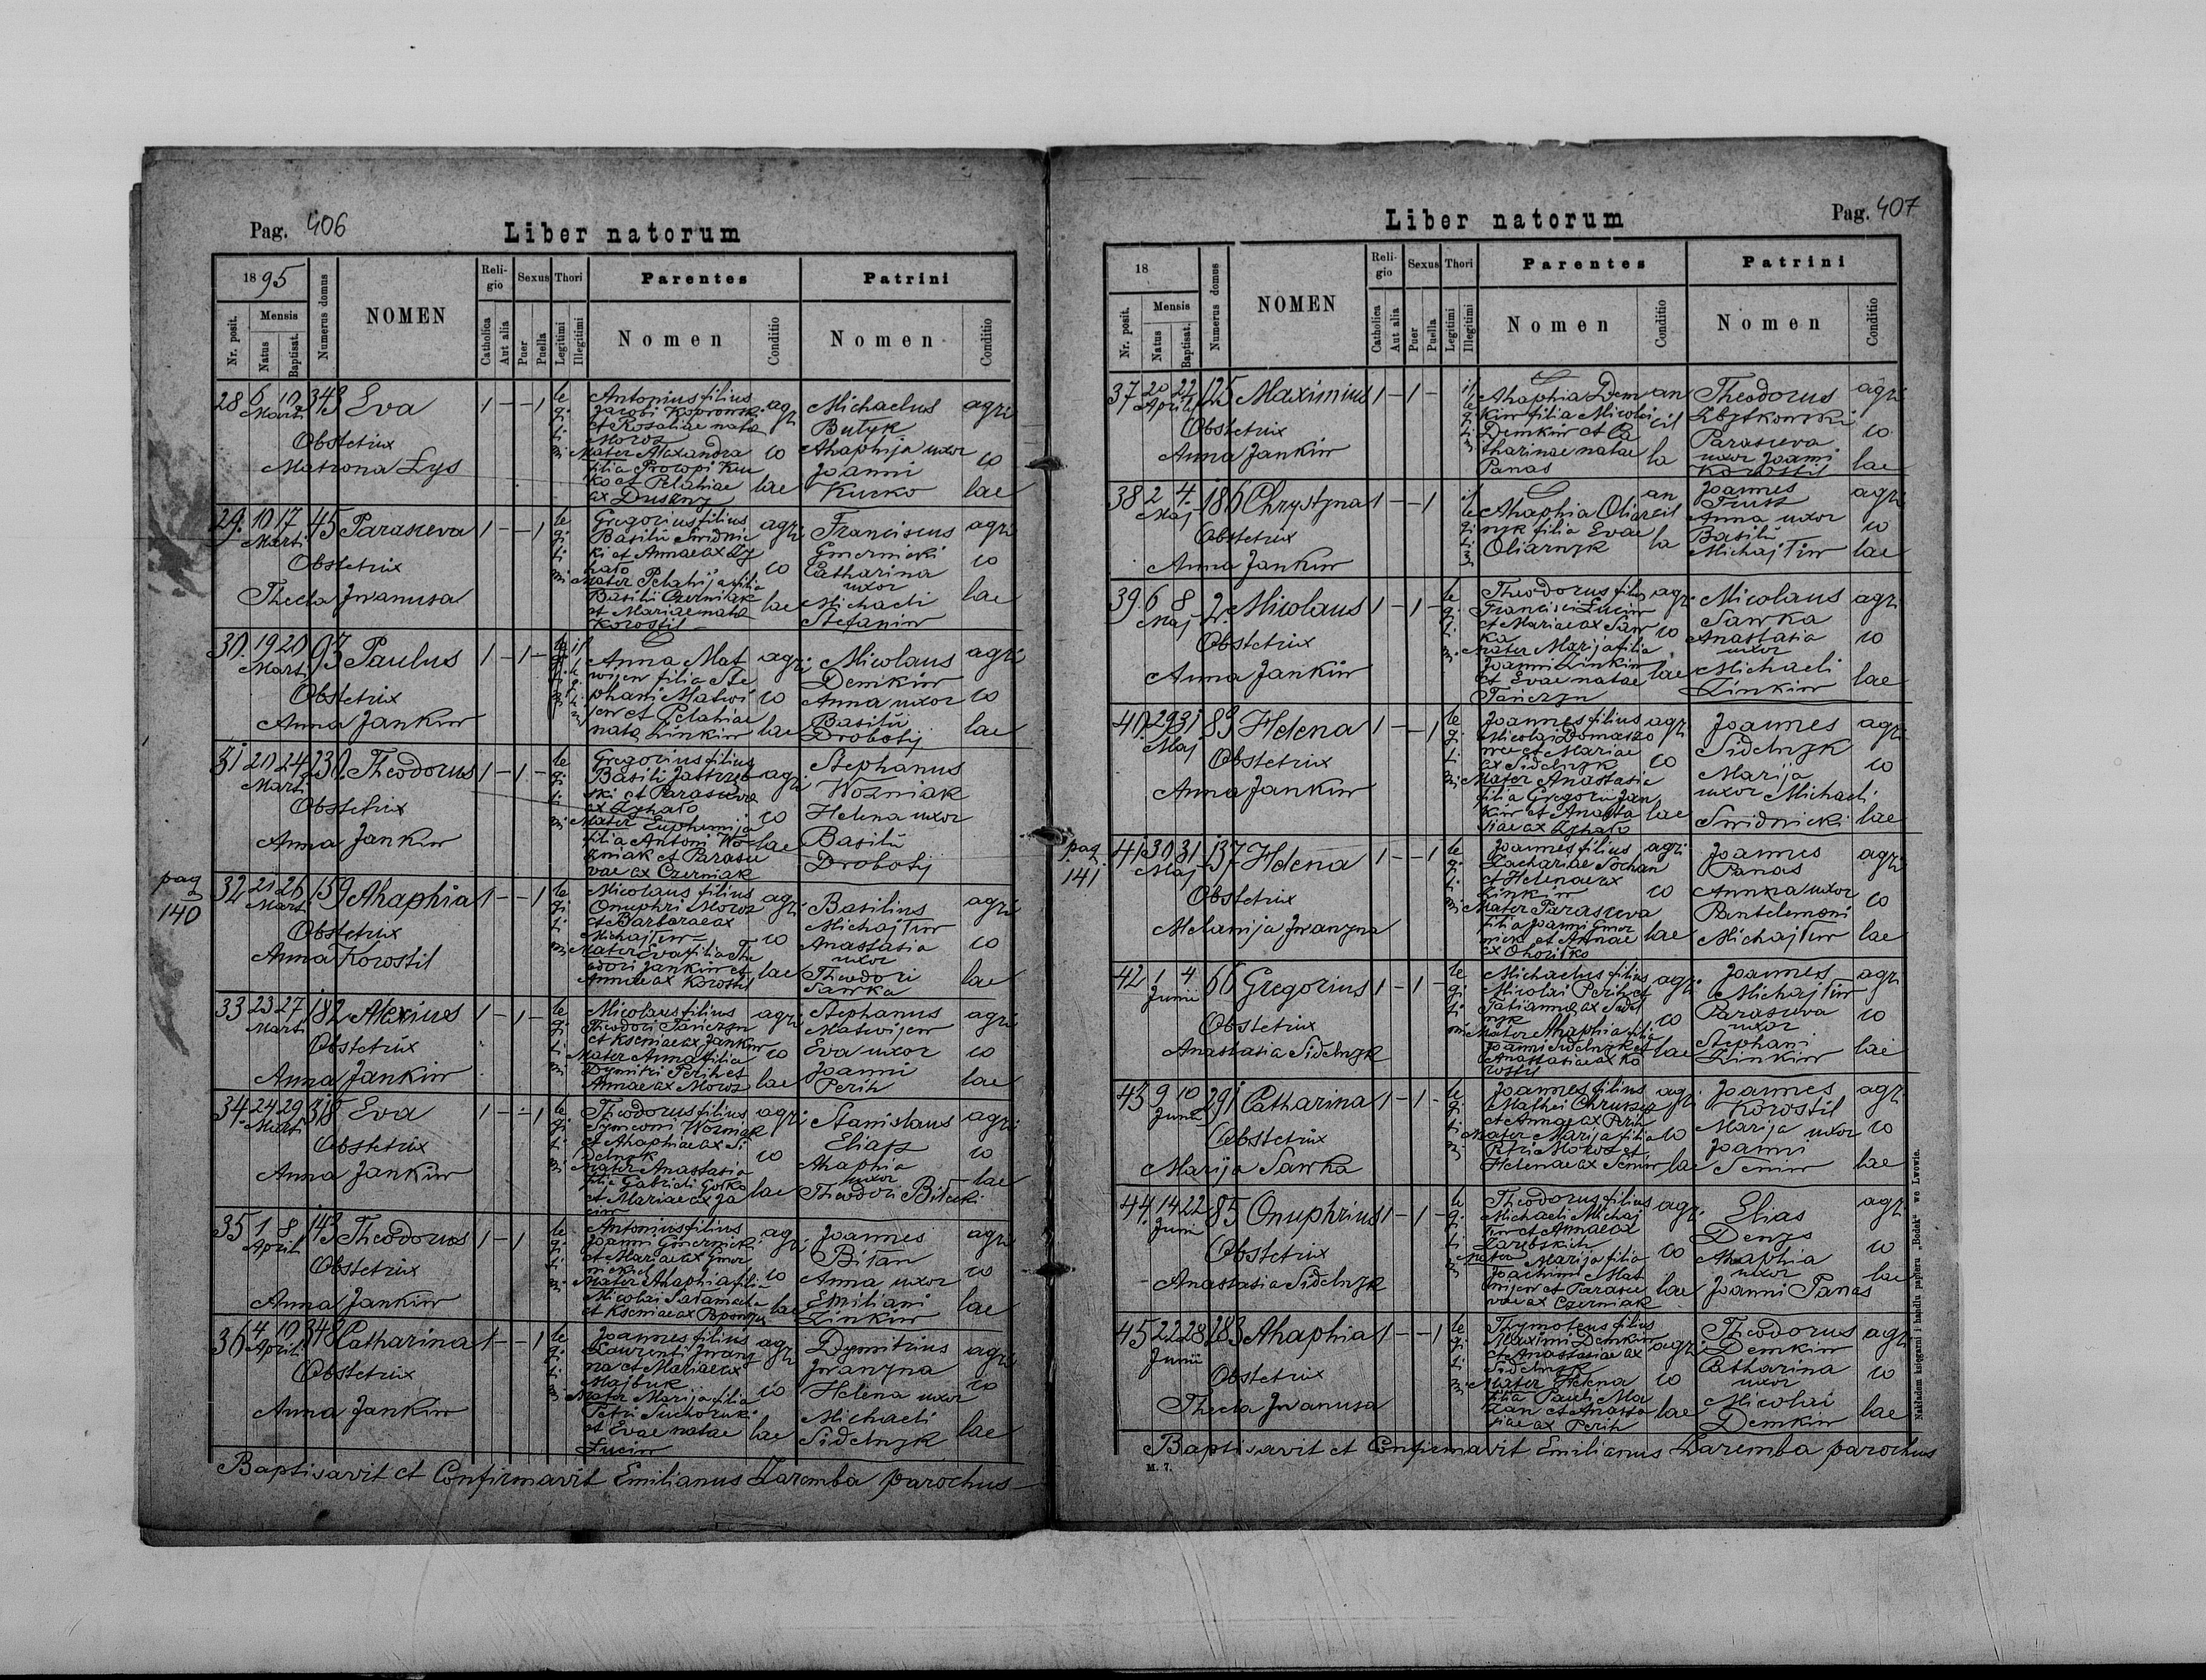 Pag. 406
Liber natorum
1895
Numerus domus
NOMEN
Religio
Sexus
Thori
Parentes
Patrini
Nr. posit.
Mensis
Natus
Baptisat.
Catholica
Aut alia
Puer
Puella
Legitimi
Illegitimi
Nomen
Conditio
Nomen
Conditio
28 6 10 Marti 343 Eva 1 – – 1 legitimi
Obstetrix
Matrona Lys
Antonius filius
Jacobi Koprowski
et Rosaliae nata
Moroz
Mater Alexandra
filia Procopi Kur
ko et Pelahiae
ex Duszny
agricolae
Michaelus
Butyk
Ahaphija uxor
Joanni
Kurko
agricolae
29. 10 17 Marti 45 Parasceva 1 – – 1 legitimi
Obstetrix
Thecla Jwanusa
Gregorius filius
Basilii Swidnic
ki et Annae ex Zy
hało
Mater Pelahija filia
Basilii Czerniak
et Mariae nata
Korostil
agricolae
Franciscus
Gmernicki
Catharina
uxor
Michaeli
Stefaniw
agricolae
30. 19 20 Marti 93 Paulus 1 – 1 – illegitimi
Obstetrix
Anna Jankiw
Anna Mat
wijew filia Ste
phani Matwi
jew et Pelahiae
nata Zinkiw
agricolae
Nicolaus
Demkiw
Anna uxor
Basilii
Drobotij
agricolae
31 20 24 Marti 230 Theodorus 1 – 1 – legitimi
Obstetrix
Anna Jankiw
Gregorius filius
Basili Jastrzeb
ski et Parasceva
ex Zyhało
Mater Euphemija
filia Antoni Wo
zniak et Parasce
vae ex Czerniak
agricolae
Stephanus
Wozniak
Helena uxor
Basilii
Drobotij
pag 140
32 21 26 Marti 159 Ahaphia 1 – – 1 legitimi
Obstetrix
Anna Korostil
Nicolaus filius
Onuphri Moroz
et Barbarae ex
Michajłiw
Mater Eva filia The
odori Jankiw et
Annae ex Korostil
agricolae
Basilius
Michajłiw
Anastasia
uxor
Theodori
Sawka
agricolae
33 23 27 Marti 182 Alexius 1 – 1 – legitimi
Obstetrix
Anna Jankiw
Nicolaus filius
Theodori Tanczyn
et Kseniae ex Jankiw
Mater Anna filia
Dymitri Perih et
Annae ex Moroz
agricolae
Stephanus
Matwijew
Eva uxor
Joanni
Perih
agricolae
34 24 29 Marti 318 Eva 1 – – 1 legitimi
Obstetrix
Anna Jankiw
Theodorus filius
Symeoni Wozniak
et Ahaphiae ex Si
delnyk
Mater Anastasia
filia Gabrieli Gorko
et Mariae ex Ja
ciw
agricolae
Stanislaus
Eliasz
Ahaphia
uxor
Theodori Biłecki
agricolae
35 1 8 April 143 Theodorus 1 – 1 legitimi
Obstetrix
Anna Jankiw
Antonius filius
Joanni Gmernicki
et Mariae ex Gmer
nickich
Mater Ahaphia filia
Nicolai Sałamacha
et Kseniae ex
agricolae
Joannes
Biłan
Anna uxor
Emiliani
Zinkiw
agricolae
36 4 10 April 348 Catharina 1 – – 1 legitimi
Obstetrix
Anna Jankiw
Joannes filius
Laurenti Jwany
na et Mariae ex
Majbuk
Mater Marija filia
Petri Suchoruki
et Evae natae
Łuciw
agricolae
Dymitrius
Jwanyna
Helena uxor
Michaeli
Sidelnyk
agricolae
Baptisavit et Confirmavit Emilianus Zaremba parochus
Liber natorum
Pag. 407
18
Numerus domus
NOMEN
Religio
Sexus
Thori
Parentes
Patrini
Nr. posit.
Mensis
Natus
Baptisat.
Catholica
Aut alia
Puer
Puella
Legitimi
Illegitimi
Nomen
Conditio
Nomen
Conditio
37 20 22 Aprili 125 Maximius 1 – 1 – illegitimi
Obstetrix
Anna Jankiw
Ahaphia Dem
kiw filia Nicolai
Demkiw et Ca
tharinae natae
Panas
ancilla
Theodorus
Zbytkowski
Parasceva
uxor Joanni
Korostil
agricolae
38 2 4. Maj 186 Chrystyna 1 – – 1 illegitimi
Obstetrix
Anna Jankiw
Ahaphia Oliar
nyk filia Evae
Oliarnyk
ancilla
Joannes
Trusz
Anna uxor
Basilii
Michajłiw
agricolae
39 6 8 Maj 2. Nicolaus 1 – 1 – legitimi
Obstetrix
Anna Jankiw
Theodorus filius
Francisci Łuciw
et Mariae ex Saw
ka
Mater Marija filia
Joanni Zinkiw
et Evae natae
Tanczyn
agricolae
Nicolaus
Sawka
Anastasia
uxor
Michaeli
Zinkiw
agricolae
40 29 31 Maj 83 Helena 1 – – 1 legitimi
Obstetrix
Anna Jankiw
Joannes filius
Nicolai Domaszo
wec et Mariae
ex Sidelnyk
Mater Anastasia
filia Gregorii Jan
kiw et Anasta
siae ex Zyhało
agricolae
Joannes
Sidelnyk
Marija
uxor Michaeli
Swidnicki
agricolae
pag. 141
41 30 31 Maj 137 Helena 1 – – 1 legitimi
Obstetrix
Melanija Jwanyna
Joannes filius
Zachariae Sochan
et Helenae ex
Zinkiw
Mater Parasceva
filia Joanni Gmer
nicki et Annae
ex Ohoriłko
agricolae
Joannes
Panas
Anna uxor
Pantelemoni
Michajłiw
agricolae
42 1 4 Junii 66 Gregorius 1 – 1 – legitimi
Obstetrix
Anastasia Sidelnyk
Michaelus filius
Nicolai Perih et
Tatiannae ex Sidel
nyk
Mater Ahaphia filia
Joanni Sidelnyk et
Anastasiae ex Ko
rostil
agricolae
Joannes
Michajłiw
Parasceva
uxor
Stephani
Zinkiw
agricolae
43 9 10 Junii 291 Catharina 1 – 1 – legitimi
Obstetrix
Marija Sawka
Joannes filius
Mathei Chruszcz
et Annae ex Perih
Mater Marija filia
Petri Moroz et
Helenae ex Seniw
agricolae
Joannes
Korostil
Marija uxor
Joanni
Seniw
agricolae
44. 14 22 Juni 85 Onuphrius 1 – 1 – legitimi
Obstetrix
Anastasia Sidelnyk
Theodorus filius
Michaeli Michaj
łiw et Annae ex
Zarebskich
Mater Marija filia
Joachimi Mat
wijew et Parasce
vae ex Czerniak
agricolae
Elias
Denys
Ahaphia
uxor
Joanni Panas
agricolae
45 22 28 Junii 283 Ahaphia 1 – – 1 legitimi
Obstetrix
Thecla Jwanusa
Thymoteus filius
Maximi Demkiw
et Anastasiae ex
Sidelnyk
Mater Helena
filia Pauli Ma
zan et Anasta
siae ex Perih
agricolae
Theodorus
Demkiw
Catharina
uxor
Nicolai
Demkiw
agricolae
Baptisavit et Confirmavit Emilianus Zaremba parochus
M. 7.
Nakładem księgarni i handlu papieru „Bodek“ we Lwowie.